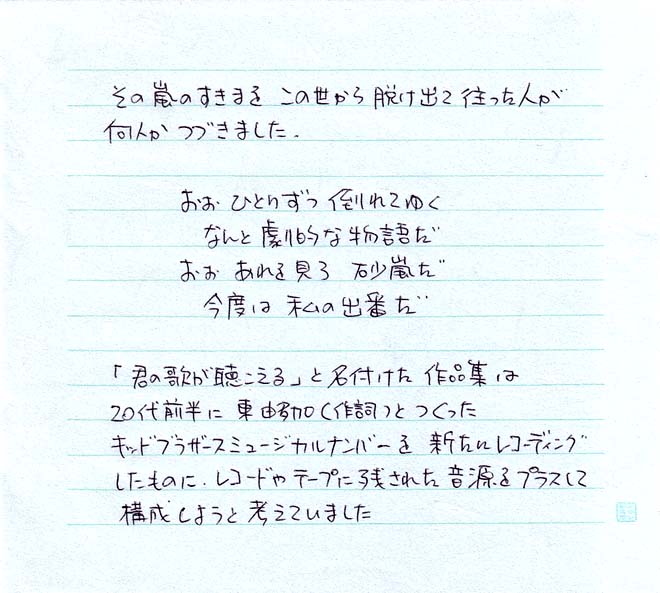 その嵐のすきまを この世から 脱け出て 往った人が
何人か つづきました.
おお ひとりずつ 倒れてゆく
なんと 劇的な 物語だ
おお あれを見ろ 砂嵐だ
今度は 私の出番だ
「君の歌が聴こえる」と 名付けた 作品集は
20代前半に 東由多加(作詞)と つくった
キッドブラザースミュージカルナンバーを 新たにレコーディング
したものに. レコードや テープに残された 音源をプラスして
構成しようと 考えていました